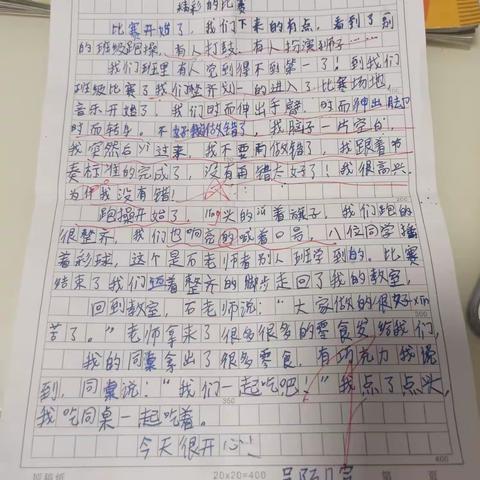 精彩的比赛
比赛开始了，我们下来的有点，看到了别
的班级跑操、有人打鼓、有人扮演狮子……
我们班里有人觉到得不到第一了！到我们
班级比赛了我们整齐划一的进入了比赛场地，
音乐开始了，我们时而伸出手臂，时而伸出脚
时而转身。不好我做错了，我脑子一片空白，
我突然反过来，我不要再做错了，我跟着节
奏标准的完成了，没有再错太好了！我很高兴。
为什我没有错！
跑操开始了，领头的
着旗子，我们跑的
很整齐，我们也响亮的喊着口号，八位同学捧
着彩球，这个是石老师者别人班学到的。比赛
结束了我们迈着整齐的脚步走回了我的教室，
回到教室，石老师说：“大家做的很好
苦了。”老师拿来了很多很多的零食发给我们，
我的同桌拿出了很多零食，有巧克力我
到，同桌说：“我们一起吃吧！”我点了点头，
我吃同桌一起吃着。
今天很开心
20×20=400
第 页